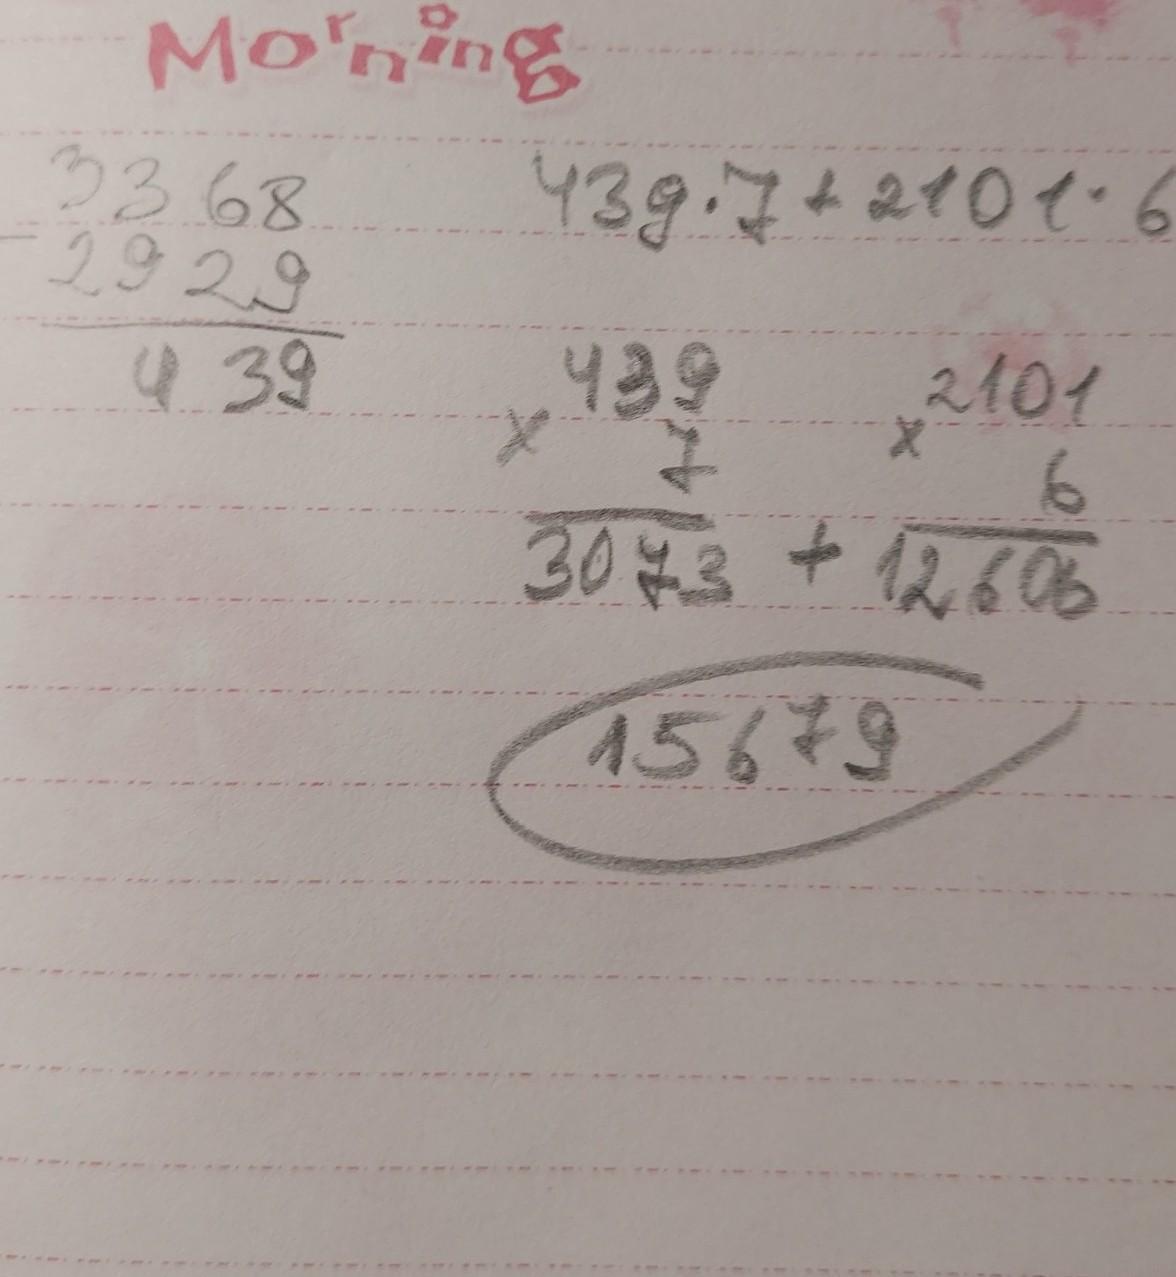 Morning
3368
- 2929
439
439·7+2101·6
439
x 7
3073
2101
x 6
12606
+
15679